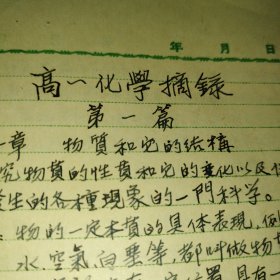 年 月 日
高一化學摘錄
第一篇
一章 物質和它的结構
究物質的性質和它的变化以及
發生的各種現象的一門科学。
物的一定本質的具体表現,例
水、空氣白堊等,都叫做物